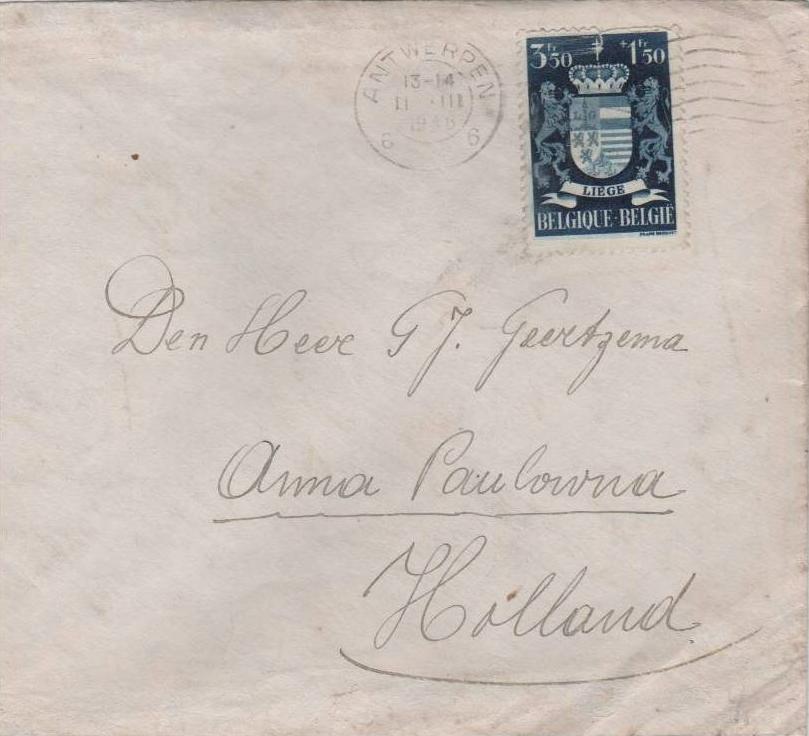 ANTWERPEN
13-14
11 III
6 6
3Fr50 +1Fr50
LIÈGE
BELGIQUE·BELGIË
Den Heer G J. Geertzema
Anna Paulowna
Holland